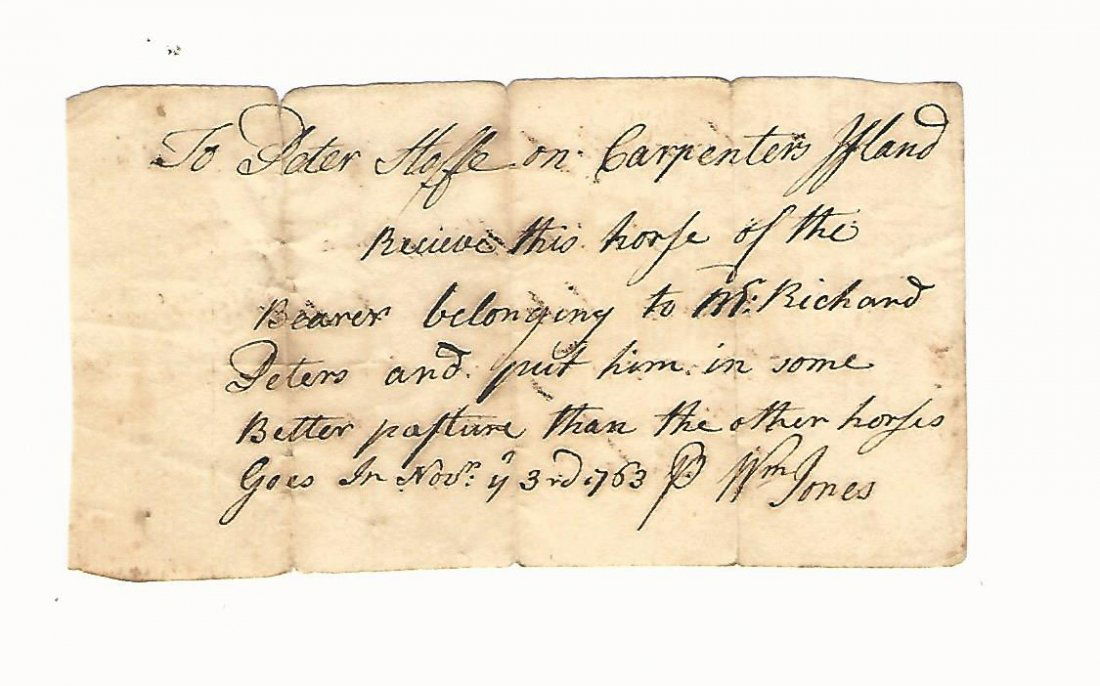 To Peter Hoffe on Carpenters Island
Recieve this horse of the
Bearer belonging to Mr. Richard
Peters and put him in some
Better pasture than the other horses
Goes In Novr. ye 3rd 1763 Pr Wm Jones